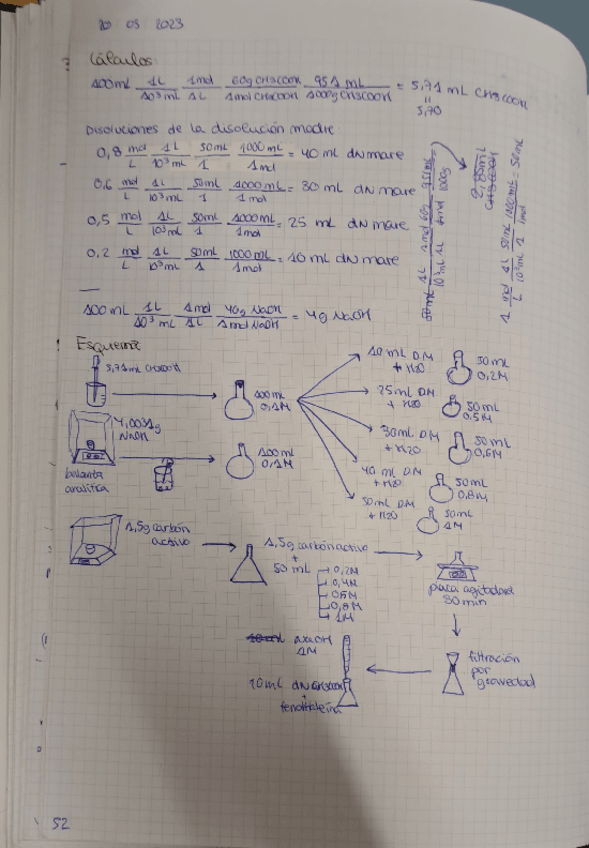 20 03 2023
Cálculos:
100mL 1L/10³mL 1mol/1L 60g CH3COOH/1mol CH3COOH 951mL/1000g CH3COOH = 5,71 mL CH3COOH
5,70
Disoluciones de la disolución madre:
0,8 mol/L 1L/10³mL 50mL/1 1000mL/1mol = 40 mL dN mare
0,6 mol/L 1L/10³mL 50mL/1 1000mL/1mol = 30 mL dN mare
0,5 mol/L 1L/10³mL 50mL/1 1000mL/1mol = 25 mL dN mare
0,2 mol/L 1L/10³mL 50mL/1 1000mL/1mol = 10 mL dN mare
1 mol/L 1L/10³mL 50mL/1 1000mL/1mol = 50mL
100mL 1L/10³mL 1mol/1L 40g NaOH/1mol NaOH = 4g NaOH
Esquema
5,71mL CH3COOH
100mL
0,1M
4,0031g
NaOH
balanta
analítica
100mL
0,1M
10 mL DM
+ H2O
50mL
0,2M
25mL DM
+ H2O
50mL
0,5M
30mL DM
+ H2O
50mL
0,6M
40 mL DM
+ H2O
50mL
0,8M
50mL DM
+ H2O
50mL
1M
1,5g carbón
activo
1,5g carbón activo
+
50 mL
0,2M
0,4M
0,6M
0,8M
1M
placa agitadora
30 min
filtración
por
gravedad
NaOH
1M
10mL dN CH3COOH
+
fenolftaleína
52